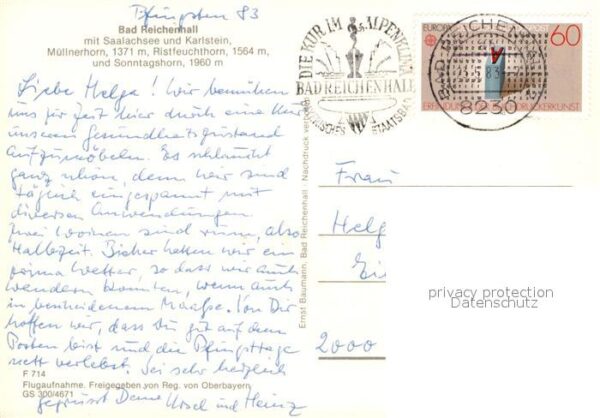 Pfingsten 83
Bad Reichenhall
mit Saalachsee und Karlstein,
Müllnerhorn, 1371 m, Ristfeuchthorn, 1564 m,
und Sonntagshorn, 1960 m
Liebe Helga! Wir bemühen
uns zur Zeit hier durch eine Kur
unseren Gesundheitszustand
aufzumöbeln. Es schlaucht
ganz schön, denn wir sind
täglich eingespannt mit
diversen Anwendungen.
Zwei Wochen sind rum, also
Halbzeit. Bisher hatten wir ein
prima Wetter, so dass wir auch
wandern konnten, wenn auch
in bescheidenem Maaße. Von Dir
hoffen wir, dass Du gut auf dem
Posten bist und die Pfingsttage
nett verlebst. Sei sehr herzlich
gegrüsst Deine Ursel und Heinz
F 714
Flugaufnahme. Freigegeben von Reg. von Oberbayern
GS 300/4671
Ernst Baumann, Bad Reichenhall Nachdruck verboten
DIE KUR IM ALPENKLIMA
BAD REICHENHALL
BAYERISCHES STAATSBAD
BAD REICHENHALL
83
8230
EUROPA
60
BUCHDRUCKERKUNST
Frau
Helg
2000
privacy protection
Datenschutz